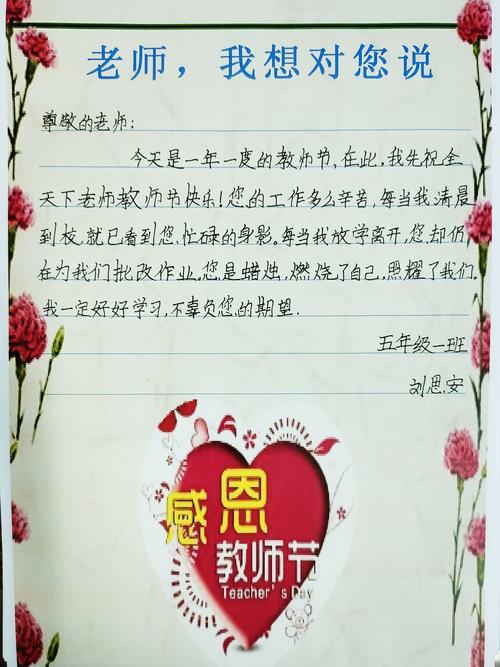 老师，我想对您说
尊敬的老师：
今天是一年一度的教师节，在此，我先祝全
天下老师教师节快乐！您的工作多么辛苦，每当我清晨
到校，就已看到您忙碌的身影。每当我放学离开，您却仍
在为我们批改作业。您是蜡烛，燃烧了自己，照耀了我们，
我一定好好学习，不辜负您的期望．
五年级一班
刘思安
感恩
教师节
Teacher's Day